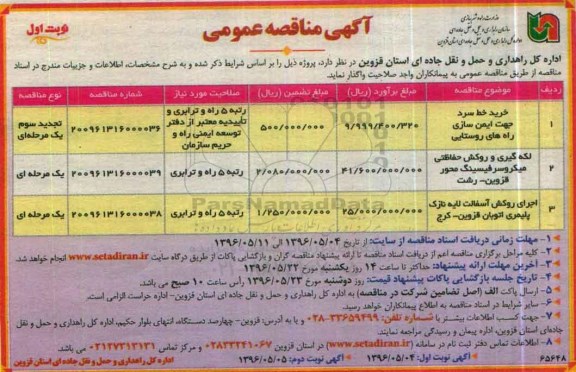 وزارت راه و شهرسازی
سازمان راهداری و حمل و نقل جاده ای
اداره کل راهداری و حمل و نقل جاده ای استان قزوین
آگهی مناقصه عمومی
نوبت اول
اداره کل راهداری و حمل و نقل جاده ای استان قزوین در نظر دارد، پروژه ذیل را بر اساس شرایط ذکر شده و به شرح مشخصات، اطلاعات و جزییات مندرج در اسناد
مناقصه از طریق مناقصه عمومی به پیمانکاران واجد صلاحیت واگذار نماید.
ردیف موضوع مناقصه مبلغ برآورد (ریال) مبلغ تضمین (ریال) صلاحیت مورد نیاز شماره مناقصه نوع مناقصه
۱ خرید خط سرد جهت ایمن سازی راه های روستایی ۹/۹۹۹/۴۰۰/۳۲۰ ۵۰۰/۰۰۰/۰۰۰ رتبه ۵ راه و ترابری و تأییدیه معتبر از دفتر توسعه ایمنی راه و حریم سازمان ۲۰۰۹۶۱۳۱۶۰۰۰۰۳۶ تجدید سوم یک مرحله‌ای
۲ لکه گیری و روکش حفاظتی میکروسرفیسینگ محور قزوین- رشت ۴۱/۶۰۰/۰۰۰/۰۰۰ ۲/۰۸۰/۰۰۰/۰۰۰ رتبه ۵ راه و ترابری ۲۰۰۹۶۱۳۱۶۰۰۰۰۳۹ یک مرحله ای
۳ اجرای روکش آسفالت لایه نازک پلیمری اتوبان قزوین- کرج ۲۵/۰۰۰/۰۰۰/۰۰۰ ۱/۲۵۰/۰۰۰/۰۰۰ رتبه ۵ راه و ترابری ۲۰۰۹۶۱۳۱۶۰۰۰۰۳۸ یک مرحله ای
ParsNamadData
۱- مهلت زمانی دریافت اسناد مناقصه از سایت: از تاریخ ۱۳۹۶/۰۵/۰۴ الی ۱۳۹۶/۰۵/۱۱
۲- کلیه مراحل برگزاری مناقصه اعم از دریافت اسناد مناقصه تا ارائه پیشنهاد مناقصه گران و بازگشایی پاکات از طریق درگاه سایت www.setadiran.ir انجام خواهد شد.
۳- آخرین مهلت ارائه پیشنهاد: حداکثر تا ساعت ۱۴ روز یکشنبه مورخ ۱۳۹۶/۰۵/۲۲
۴- تاریخ جلسه بازگشایی پاکات پیشنهاد قیمت: روز دوشنبه مورخ ۱۳۹۶/۰۵/۲۳ رأس ساعت ۱۰ صبح می باشد.
۵- ارسال پاکت الف (اصل تضامین شرکت در مناقصه) به اداره کل راهداری و حمل و نقل جاده ای استان قزوین- اداره حراست الزامی است.
۶- سایر شرایط در اسناد مناقصه به اطلاع پیمانکاران خواهد رسید.
۷- جهت کسب اطلاعات بیشتر با شماره تلفن: ۳۳۶۵۹۴۹۹-۰۲۸ و یا به آدرس: قزوین- چهارصد دستگاه، انتهای بلوار حکیم، اداره کل راهداری و حمل و نقل
جاده‌ای استان قزوین، اداره پیمان و رسیدگی مراجعه نمایند.
۸- اطلاعات تماس دفتر ثبت نام در سامانه (www.setadiran.ir) در استان قزوین ۰۲۸۳۳۲۴۱۰۶۷ و مرکز تماس ۰۲۱۴۷۳۱۳۱۳۱ می باشد.
آگهی نوبت اول: ۱۳۹۶/۰۵/۰۴ آگهی نوبت دوم: ۱۳۹۶/۰۵/۰۵
اداره کل راهداری و حمل و نقل جاده ای استان قزوین
۶۵۶۴۸